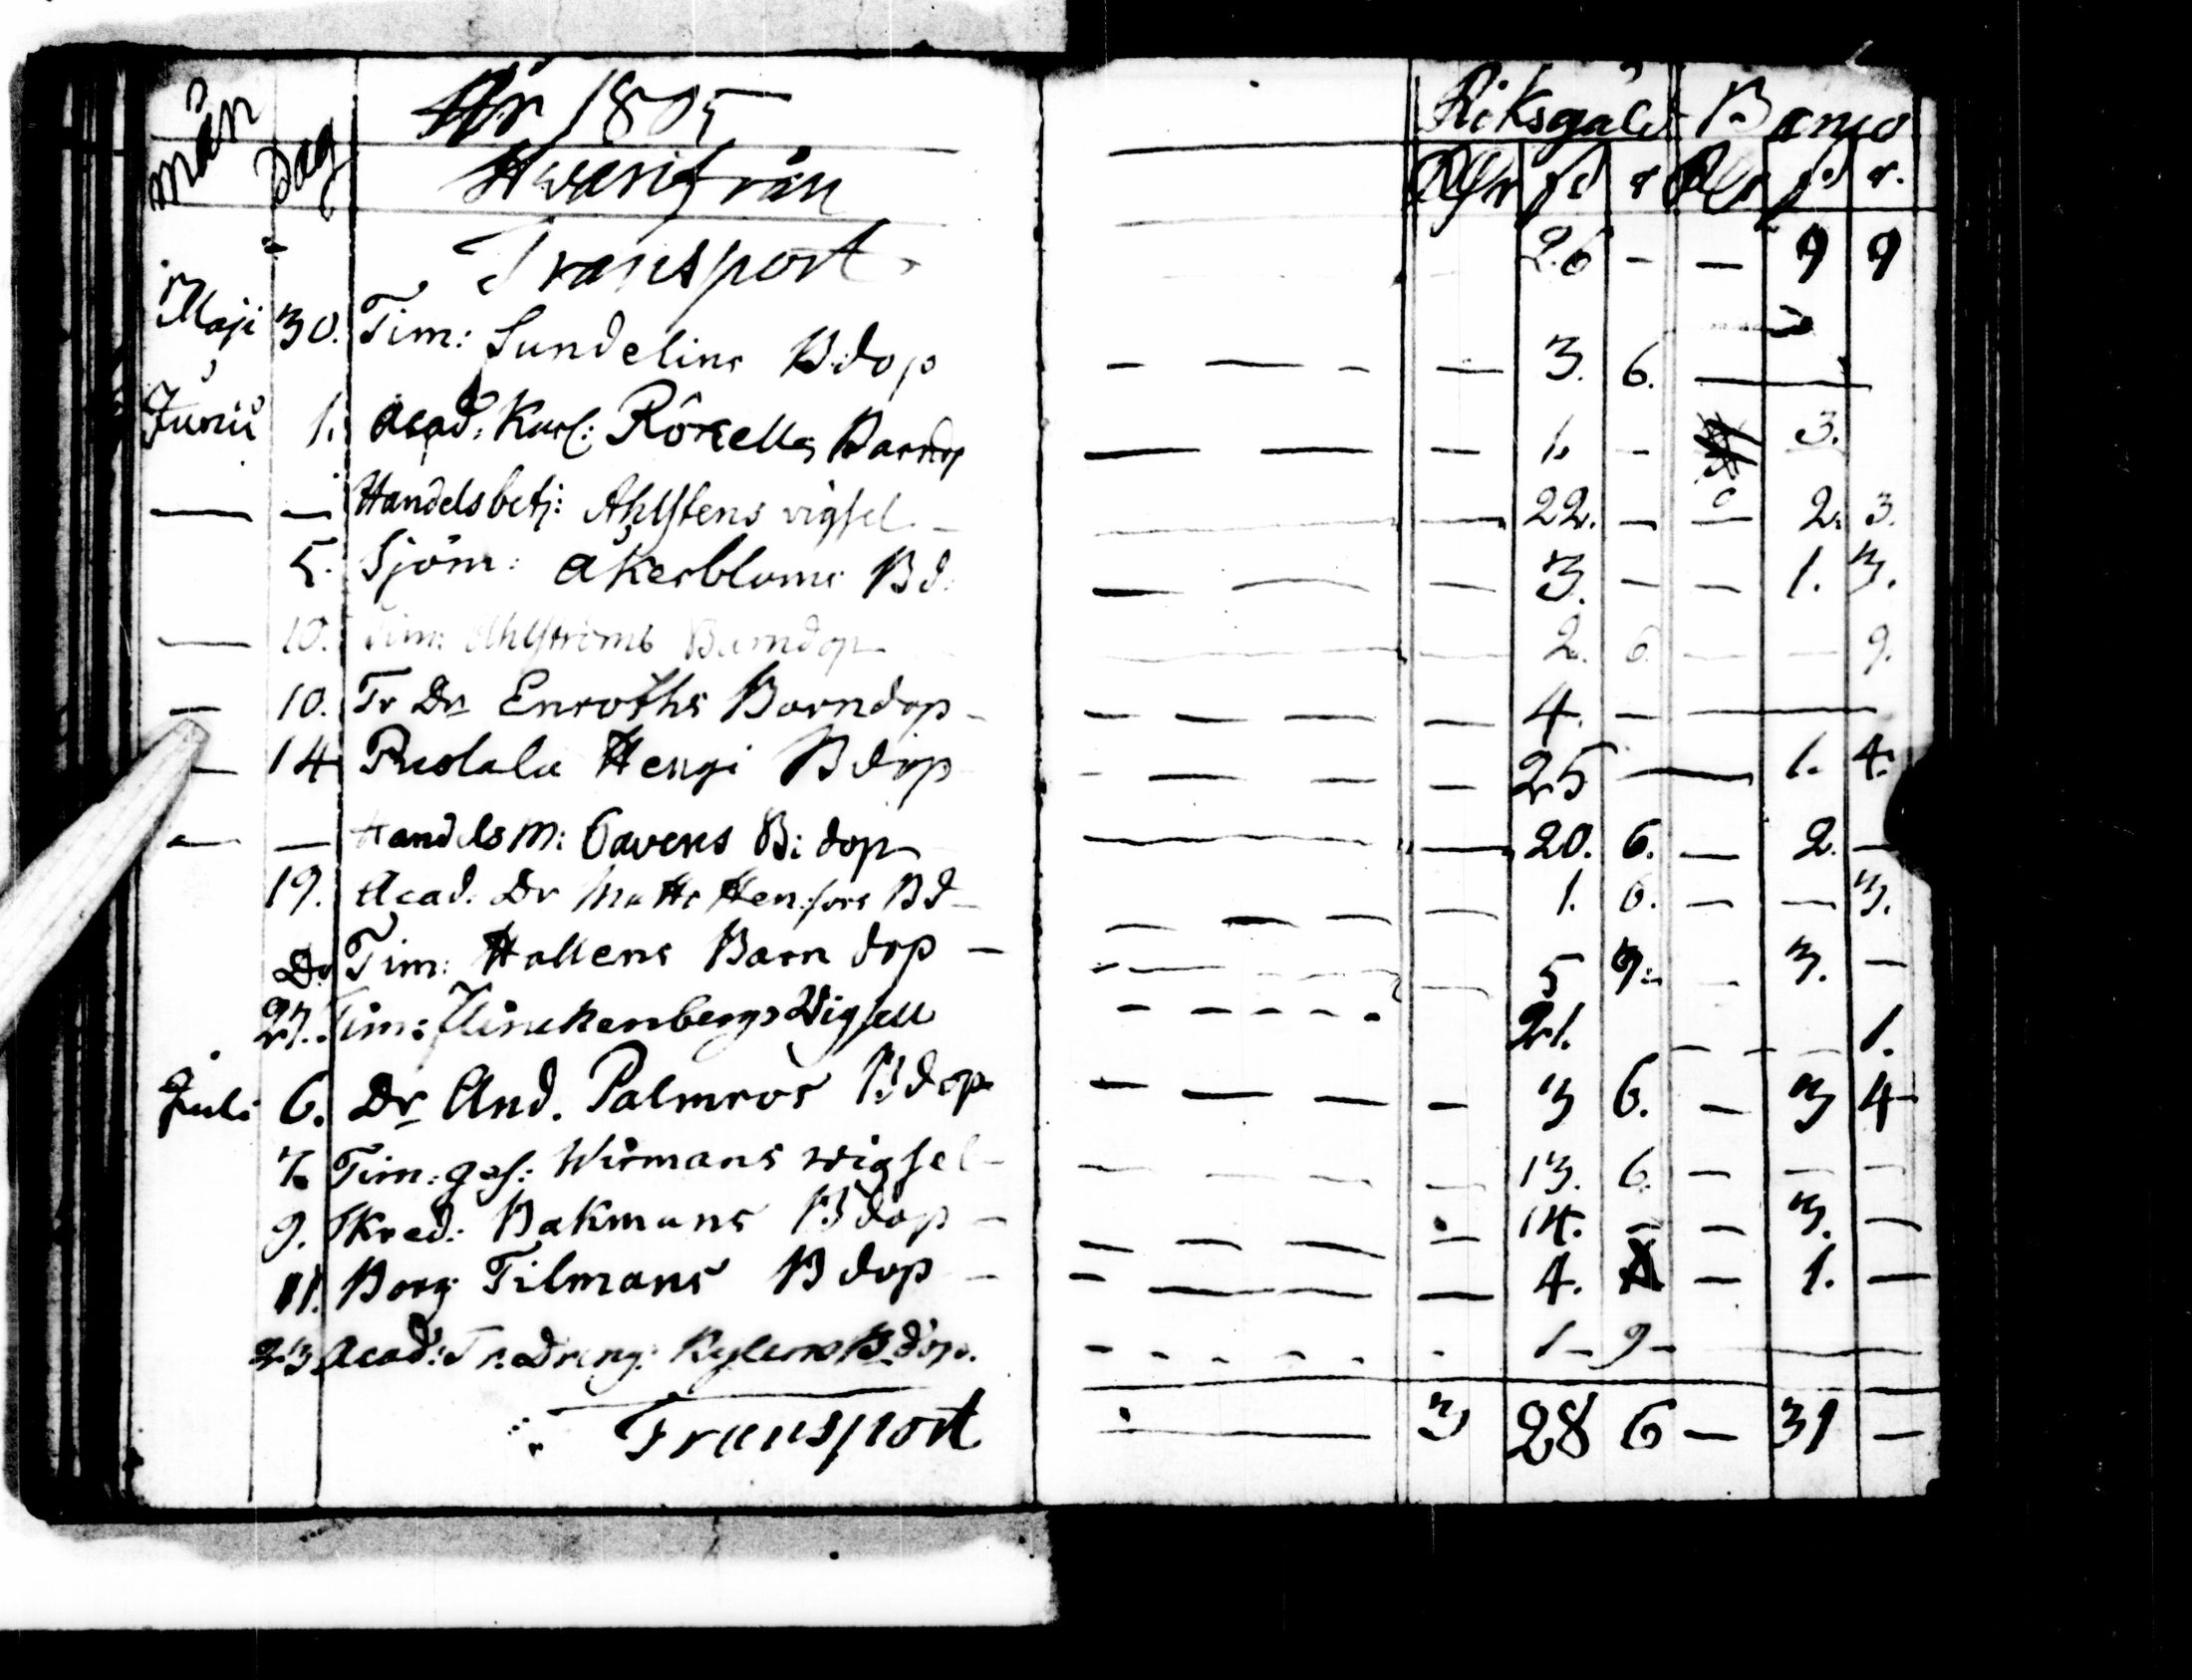 År 1805 Riksgäld Banco
Mån Dag Hwarifrån Rdr sd r Rdr sd r.
Transport 26 - - 9 9
Maji 30. Tim: Sundelins B:dop - - - - 3. 6. -
Junii 1. Acad: Karl: Röxells Barndop - - - 1. - 3.
- - Handelsbetj: Ahlstens vigsel - - 22. - - 2. 3.
5. Sjöm: Åkerbloms Bd. - - - 3. - - 1. 3.
- 10. Tim: Ahlströms Barndop - - 2. 6. - - 9.
- 10. Tr Dr Enroths Barndop - - - - - 4. - -
- 14 Ruolala Hengi Bdop - - - - 25 - 1. 4.
- - Handels M: B: dop - - 20. 6. - 2. -
19. Acad. Dr Matts Bd - - - - 1. 6. - - 3.
Do Tim: Hallens Barn dop - - - - - 5 9. - 3. -
27. Tim: Klinckenbergs Wigsell - - - - - 21. - - - 1.
Juli 6. Dr And. Palmros Bdop - - - - 3 6. - 3 4
7. Tim: ges: Wirmans wigsel - - - - - 13. 6. - - -
9. Skred: Bakmans Bdop - - - - - 14. - - 3. -
11. Borg Tilmans Bdop - - - - - - 4. - 1. -
23 Acad: Tr. Dreng: B.dop. - - - - - - 1 - 9 - -
Transport - 3 28 6 - 31 -